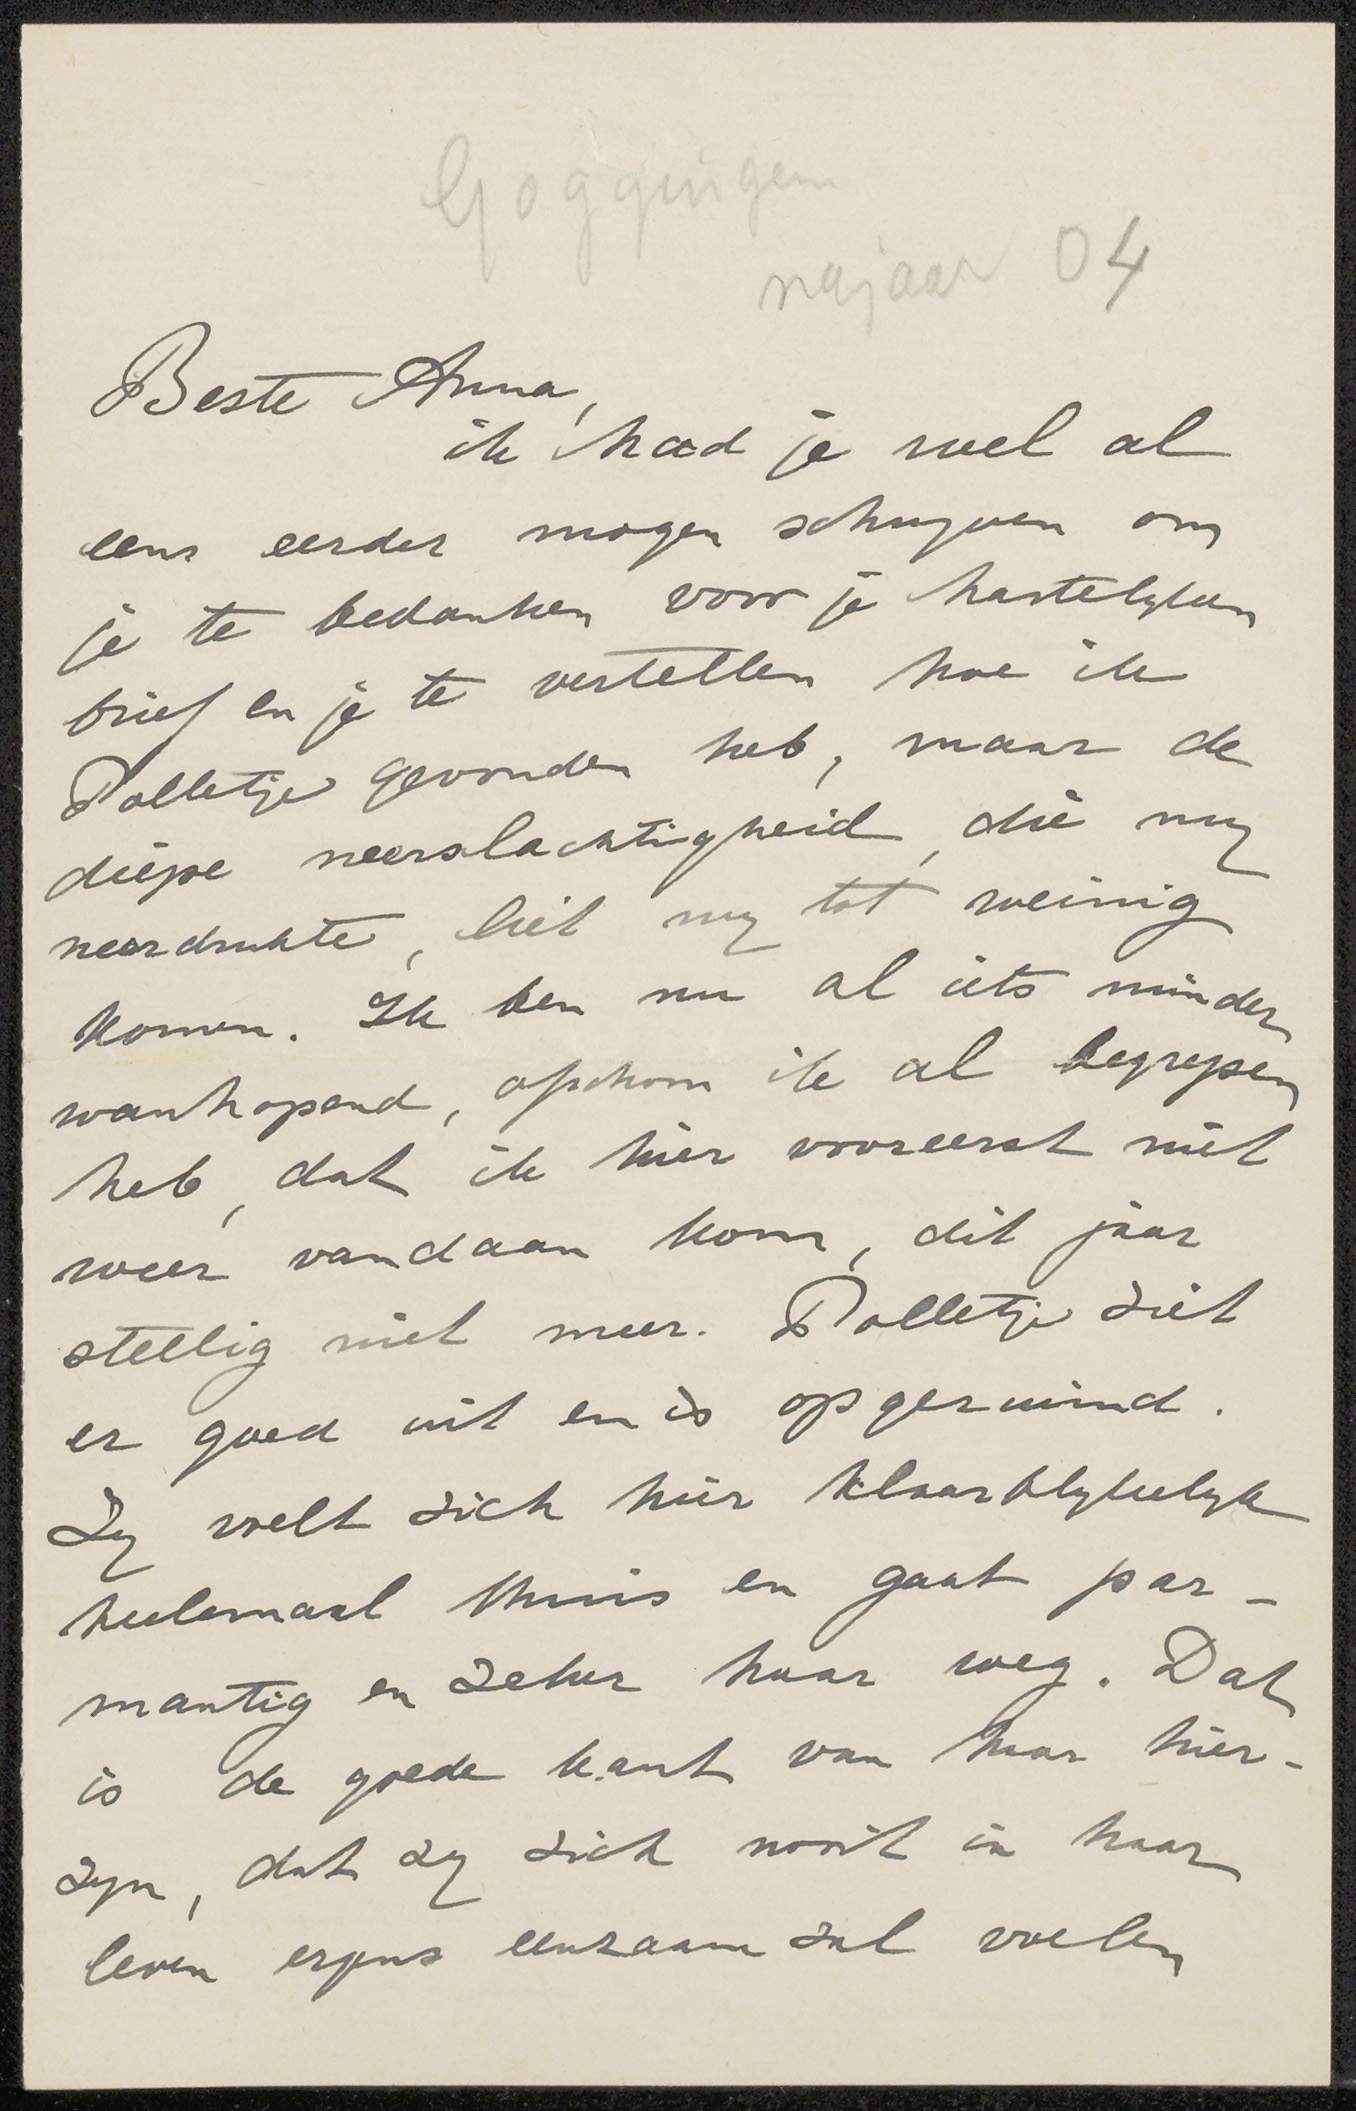 Goggingen
najaar 04
Beste Anna,
ik had je wel al
eens eerder mogen schryven om
je te bedanken voor je hartelyken
brief en je te vertellen hoe ik
Polletje gevonden heb, maar de
diepe neerslachtigheid, die my
neerdrukte, liet my tot weinig
komen. Ik ben nu al iets minder
wanhopend, ofschoon ik al begrepen
heb, dat ik hier vooreerst niet
weer vandaan kom, dit jaar
stellig niet meer. Polletje ziet
er goed uit en is opgeruimd.
Zy voelt zich hier klaarblykelyk
heelemaal thuis en gaat par-
mantig en zeker haar weg. Dat
is de goede kant van haar hier-
zyn, dat zy zich nooit in haar
leven ergens eenzaam zal voelen